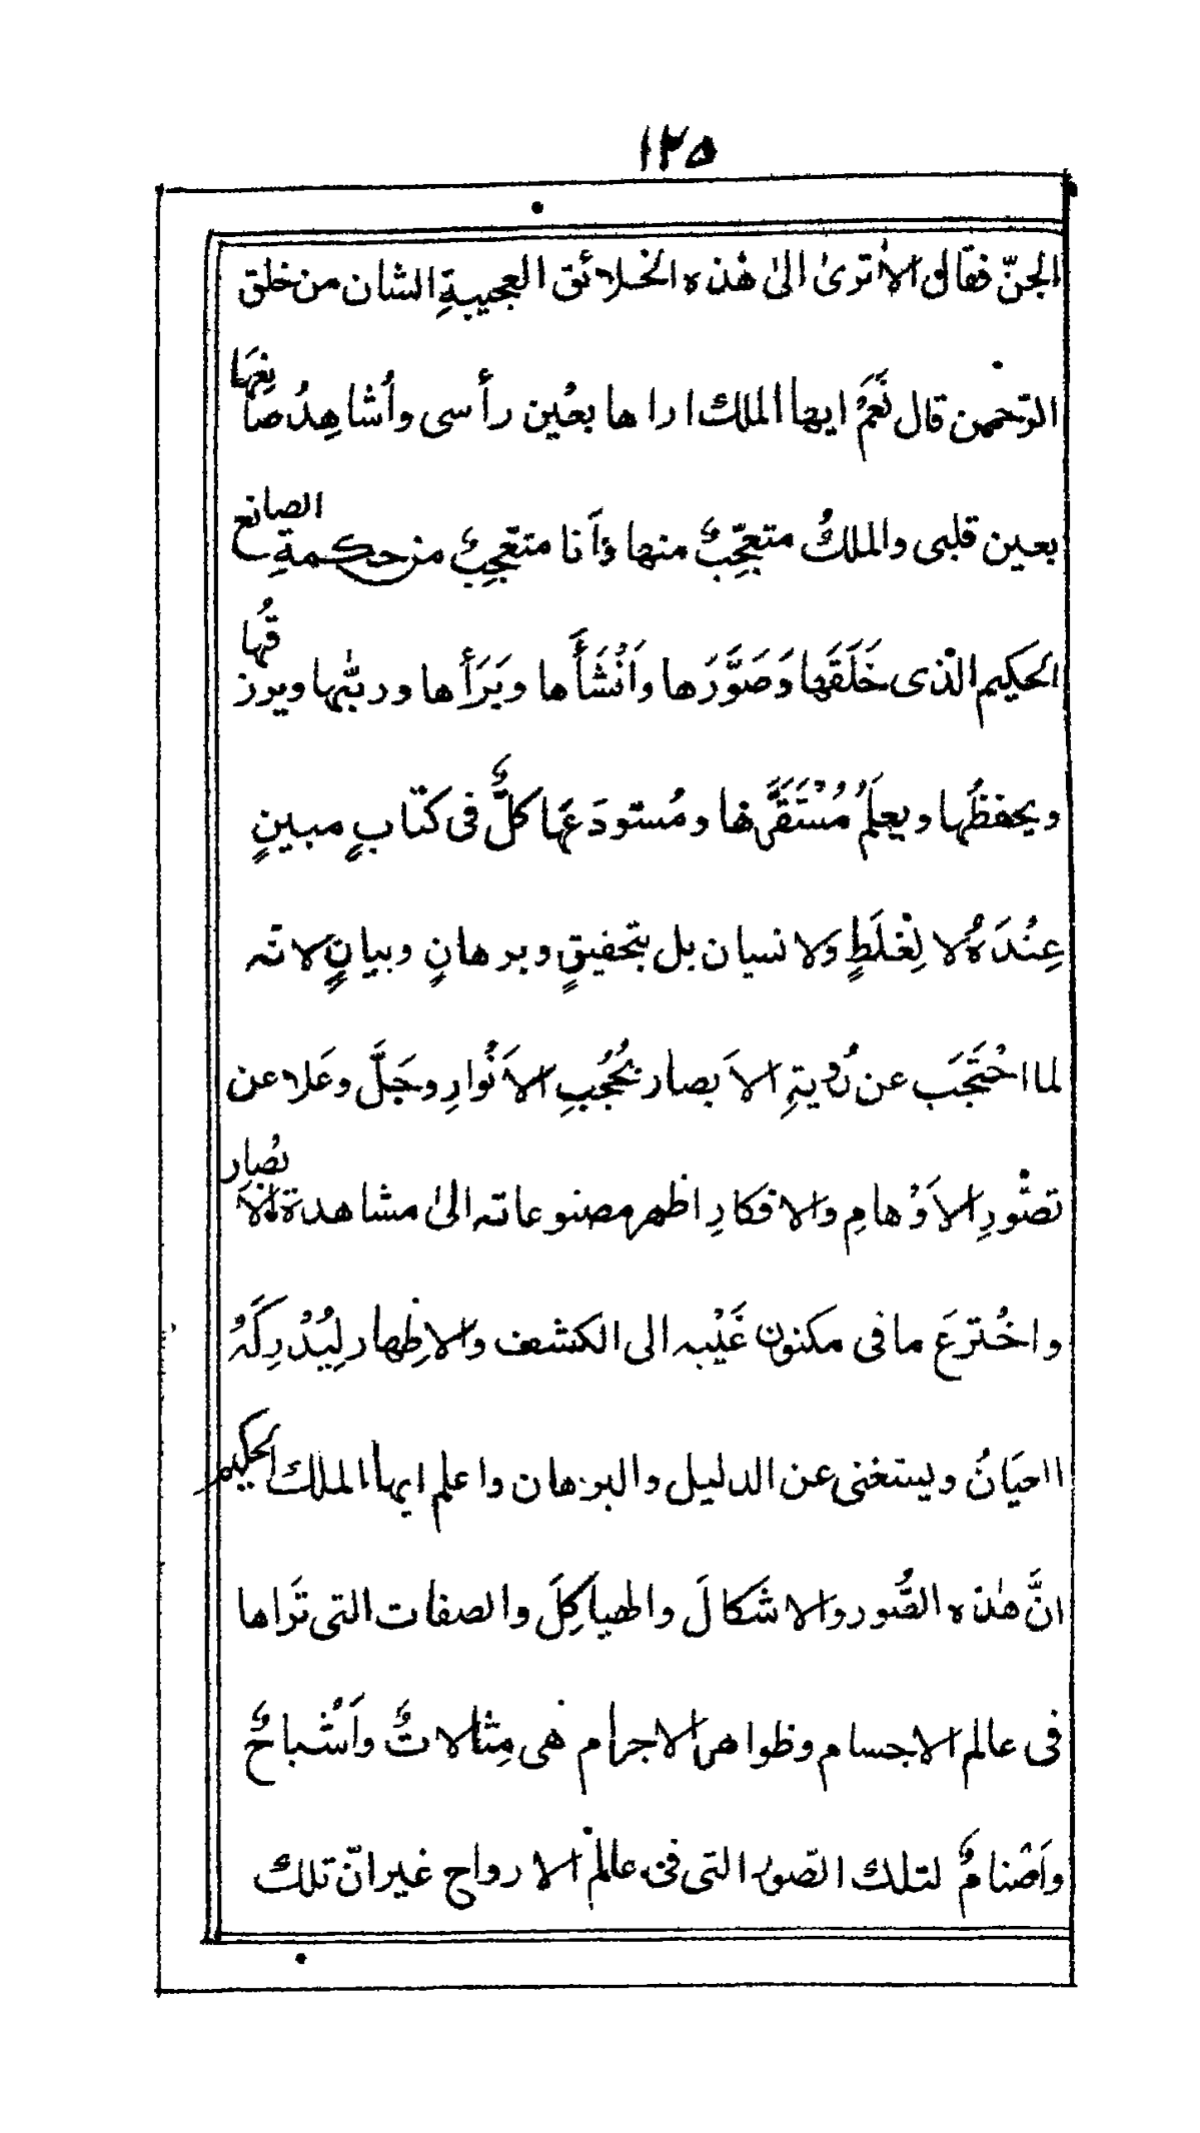 ١٢٥
الجنّ فقال الا ترىٰ الىٰ هٰذه الخلائق العجيبةِ الشان من خلق
الرّحمٰن قال نَعَمْ ايها الملك اراها بعين رأسى واُشاهِدُ صانِعَها
بعين قلبى والملكُ متعجّبٌ منها وَاَنا متعّجبٌ من حكمةِ الصانع
الحكيم الّذى خَلَقَها وَصَوَّرَها واَنْشَأَها وبَرَأَها وربّٰها ويرزقُها
ويحفظُها ويعلَمُ مُسْتَقَرَّها ومُستودَعَها كلٌّ فى كتابٍ مبينٍ
عِنْدَهُ لا لِغَلَطٍ ولا نسيان بل بتحقيقٍ وبرهانٍ وبيانٍ لانّه
لما احْتَجَب عن رُؤيتهِ الاَبصار بحُجُبِ الاَنْوارِ وجَلَّ وعَلا عن
تصّورِ الاَوْهامِ والافكارِ اظهر مصنوعاته الىٰ مشاهدة الاَبْصارِ
واخْترعَ ما فى مكنون غَيْبه الى الكشف والاِظهار لِيُدْرِكَهُ
العيَانُ ويستغنى عن الدليل والبرهان واعلم ايها الملك الحكيم
انَّ هٰذه الصُّور والاشكالَ والهياكِلَ والصفات التى تَراها
فى عالم الاجسام وظواهر الاجرام هى مِثالاتٌ واَشْباحٌ
واَصْنامٌ لتلك الصّور التى فى عالم الارواح غير انّ تلك